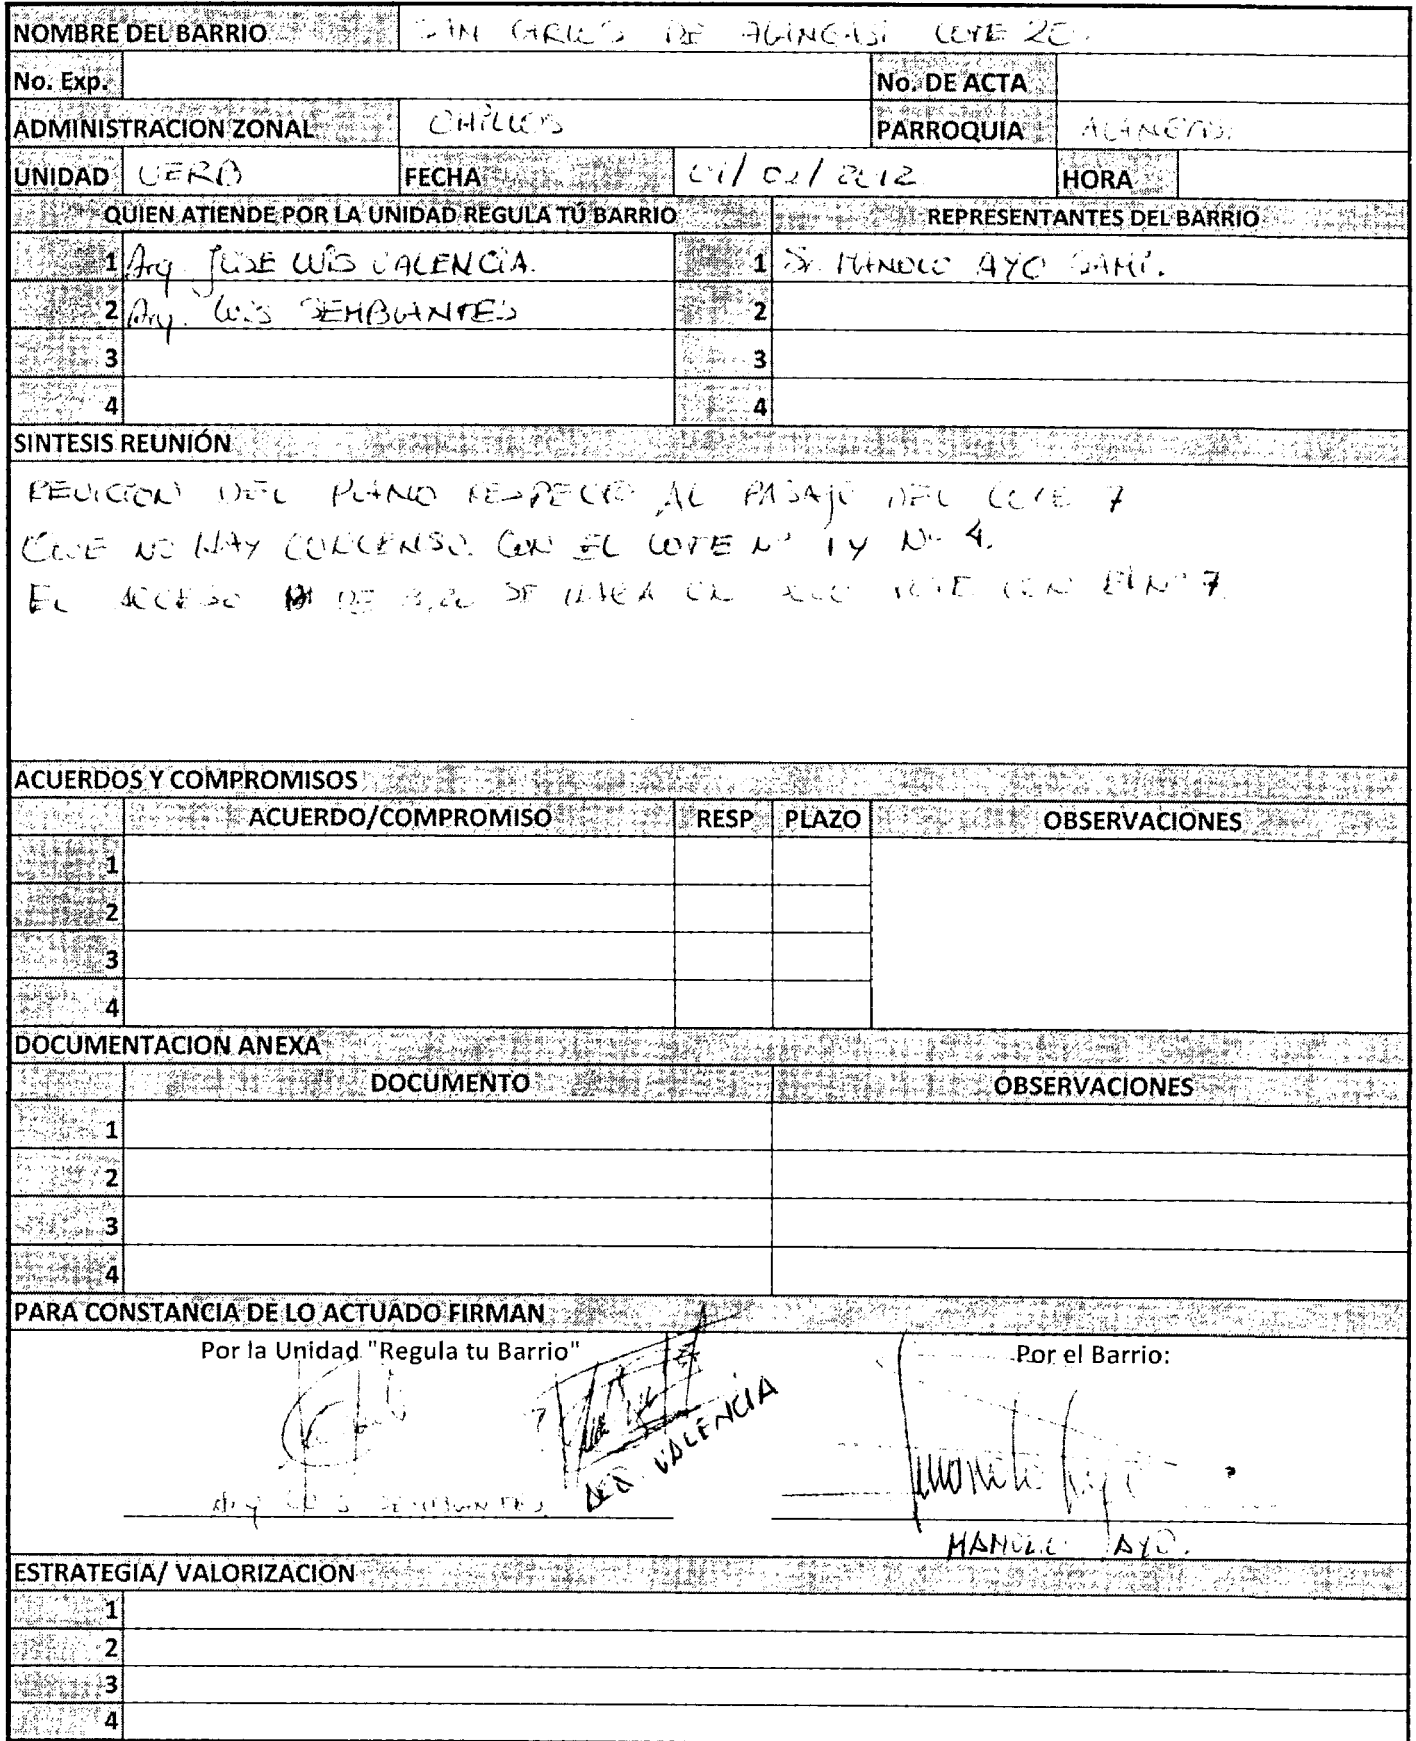 NOMBRE DEL BARRIO SAN CARLOS DE ALANGASI LOTE 20
No. Exp. No. DE ACTA
ADMINISTRACION ZONAL CHILLOS PARROQUIA ALANGASI
UNIDAD UERB FECHA /2012 HORA
QUIEN ATIENDE POR LA UNIDAD REGULA TÚ BARRIO REPRESENTANTES DEL BARRIO
1 Arq. JOSE LUIS VALENCIA. 1 Sr. MANOLO AYO
2 Arq. LUIS SEMBLANTES 2
3 3
4 4
SINTESIS REUNIÓN
REVICION DEL PLANO RESPECTO AL PASAJE DEL LOTE 7
QUE NO HAY CONCENSO CON EL LOTE Nº 1 Y Nº 4.
EL ACCESO DE 3,20 SE CON Nº 7.
ACUERDOS Y COMPROMISOS
ACUERDO/COMPROMISO RESP PLAZO OBSERVACIONES
1
2
3
4
DOCUMENTACION ANEXA
DOCUMENTO OBSERVACIONES
1
2
3
4
PARA CONSTANCIA DE LO ACTUADO FIRMAN
Por la Unidad "Regula tu Barrio" Por el Barrio:
VALENCIA
Arq LUIS SEMBLANTES
MANOLO AYO.
ESTRATEGIA/ VALORIZACION
1
2
3
4